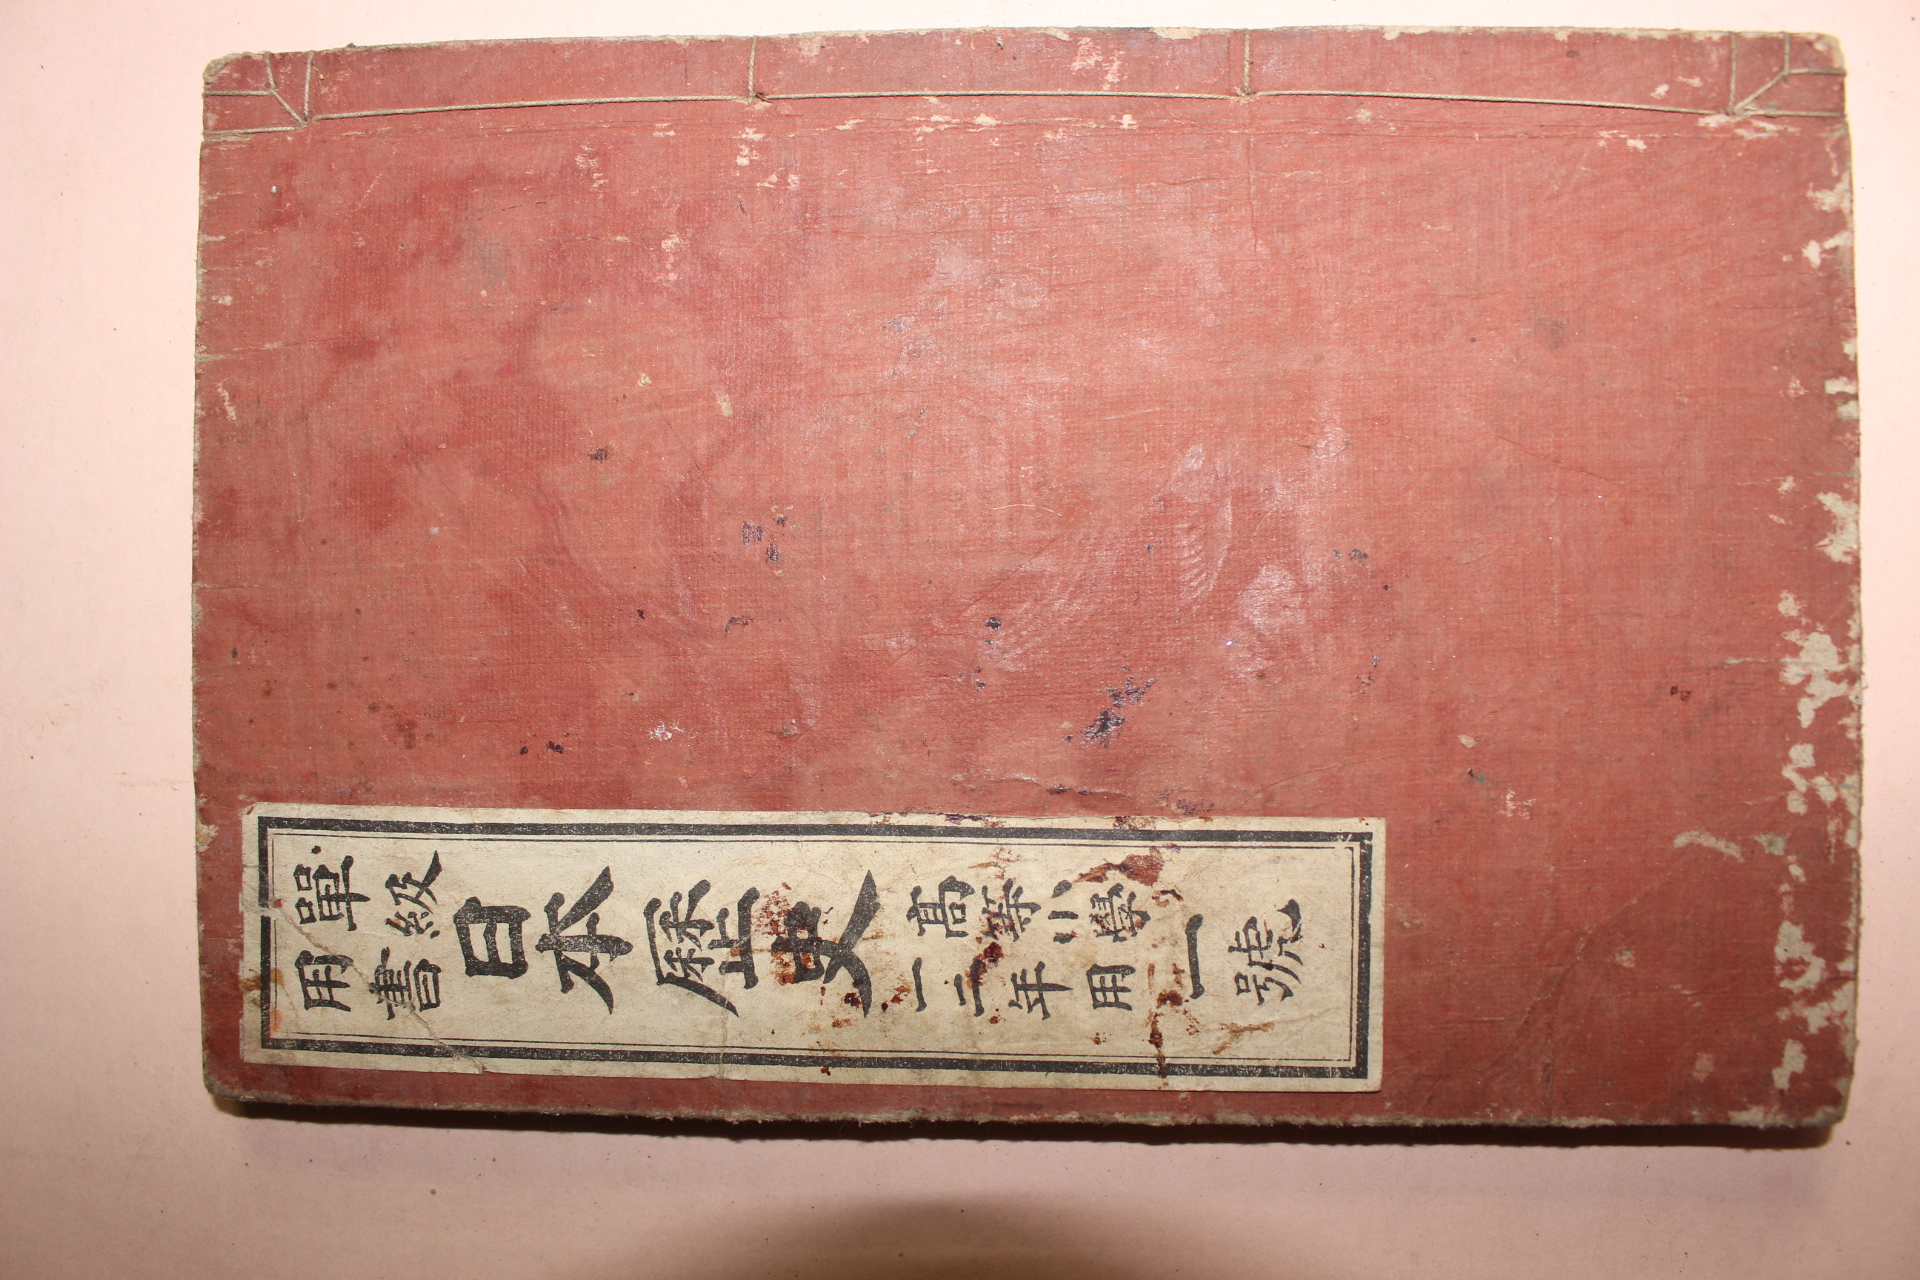 單級
用書
日本歷史
高等小學
一二年用
一號